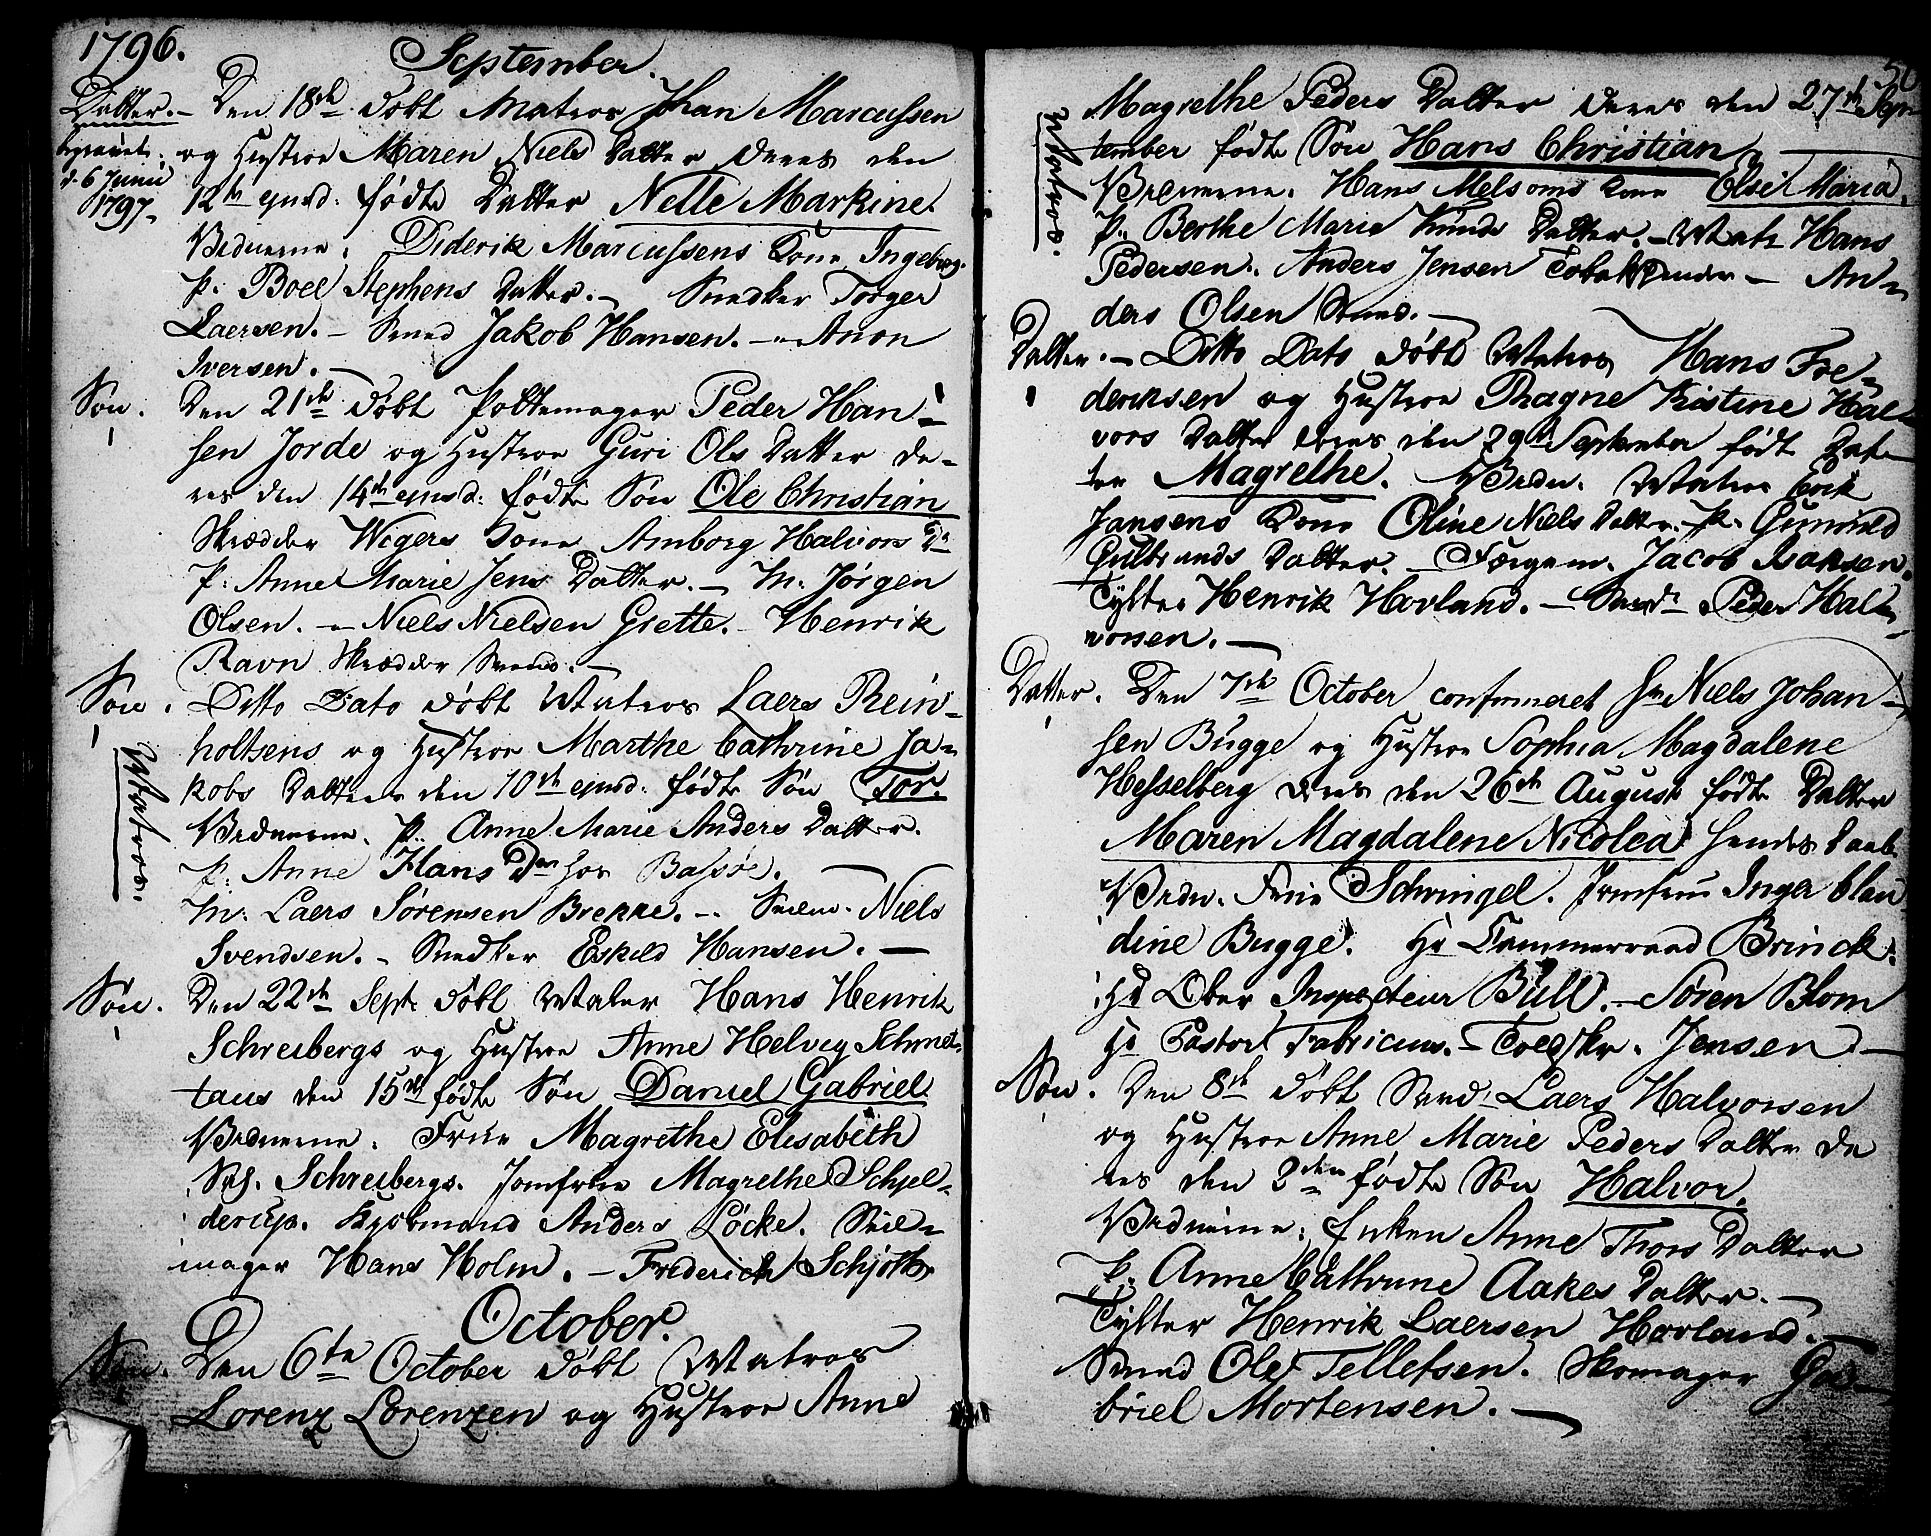 1796.
September.
Datter. – Den 18de døbt Matros Johan Marcussen
begravet d. 6 Junii 1797.
og Hustroe Maren Niels Datter deres den
12te ejusd: fødte Datter Nelle Markine.
Vidnerne. Diderik Marcussens Kone Ingeborg.
P. Boel Stephens Datter. – Snedker Torger
Laersen. – Smed Jakob Hansen. – Aron
Iversen. –
Søn. Den 21de døbt Pottemager Peder Han-
sen Jorde og Hustroe Guri Ols Datter de-
res den 14de ejusd: fødte Søn Ole Christian
Skrædder Wegers Kone Amborg Halvors D.
P. Anne Marie Jens Datter. – M. Jørgen
Olsen. – Niels Nielsen Grette. – Henrik
Ravn Skrædder Svend. –
Søn. Ditto Dato døbt Matros Laers Rein-
holtsens og Hustroe Marthe Cathrine Ja-
kobs Datter den 10de ejusd: fødte Søn Tor.
Matros.
Vidnerne. P. Anne Marie Anders Datter.
P. Anne Hans Dtr hos Bassøe. –
M. Laers Sørensen Brekke. – Niels
Svendsen. – Snedker Eskild Hansen. –
Søn. Den 22de Sept. døbt Maler Hans Henrik
Schreibergs og Hustroe Anne Helvig Schmet-
taus den 15de fødte Søn Daniel Gabriel
Vidnerne. Frue Magrethe Elisabeth
Sal. Schreibergs. Jomfrue Magrethe Schjel-
derup. Kjøbmand Anders Løcke. Seil-
mager Hans Holm. – Frederich Schjøth
October.
Søn. Den 6te October døbt Matros
Lorenz Lorenzen og Hustroe Anne
50
Magrethe Peders Datter deres den 27de Sep-
tember fødte Søn Hans Christian
Matros.
Vidnerne. Hans Melsoms Kone Else Maria.
P. Berthe Marie Knuds Datter. – Matr. Hans
Pedersen. Anders Jensen Tobakspinder – An-
ders Olsen Smed. –
Datter. – Ditto Dato døbt Matros Hans Fre-
deriksen og Hustroe Ragne Kistine Hal-
vors Datter deres den 29de September fødte Dat-
ter Magrethe. Vidn. Matros Erik
Jansens Kone Oline Niels Datter. – P. Gunild
Gulbrands Datter. – Færgem. Jacob Isaksen.
Tylter Henrik Hovland. – Smed Peder Hal-
vorsen. –
Datter. Den 7de October confirmeret Hr Niels Johan-
sen Bugge og Hustroe Sophia Magdalene
Hesselberg deres den 26de August fødte Datter
Maren Magdalene Nicolea hendes Daab.
Vidn. Frue Schwingel. Jomfrue Inger Clau-
dine Bugge. Hr Cammerraad Brinck.
Hr Ober Inspecteur Bull. – Søren Blom
Hr Pastor Fabricius. – Jensen –
Søn. Den 8de døbt Smed Laers Halvorsen
og Hustroe Anne Marie Peders Datter de
res den 2den fødte Søn Halvor.
Vidnerne. Enken Anne Thors Datter
P. Anne Cathrine Aakes Datter. –
Tylter Henrik Laersen Hovland. –
Smed Ole Tellefsen. Skomager Ga-
briel Mortensen. –